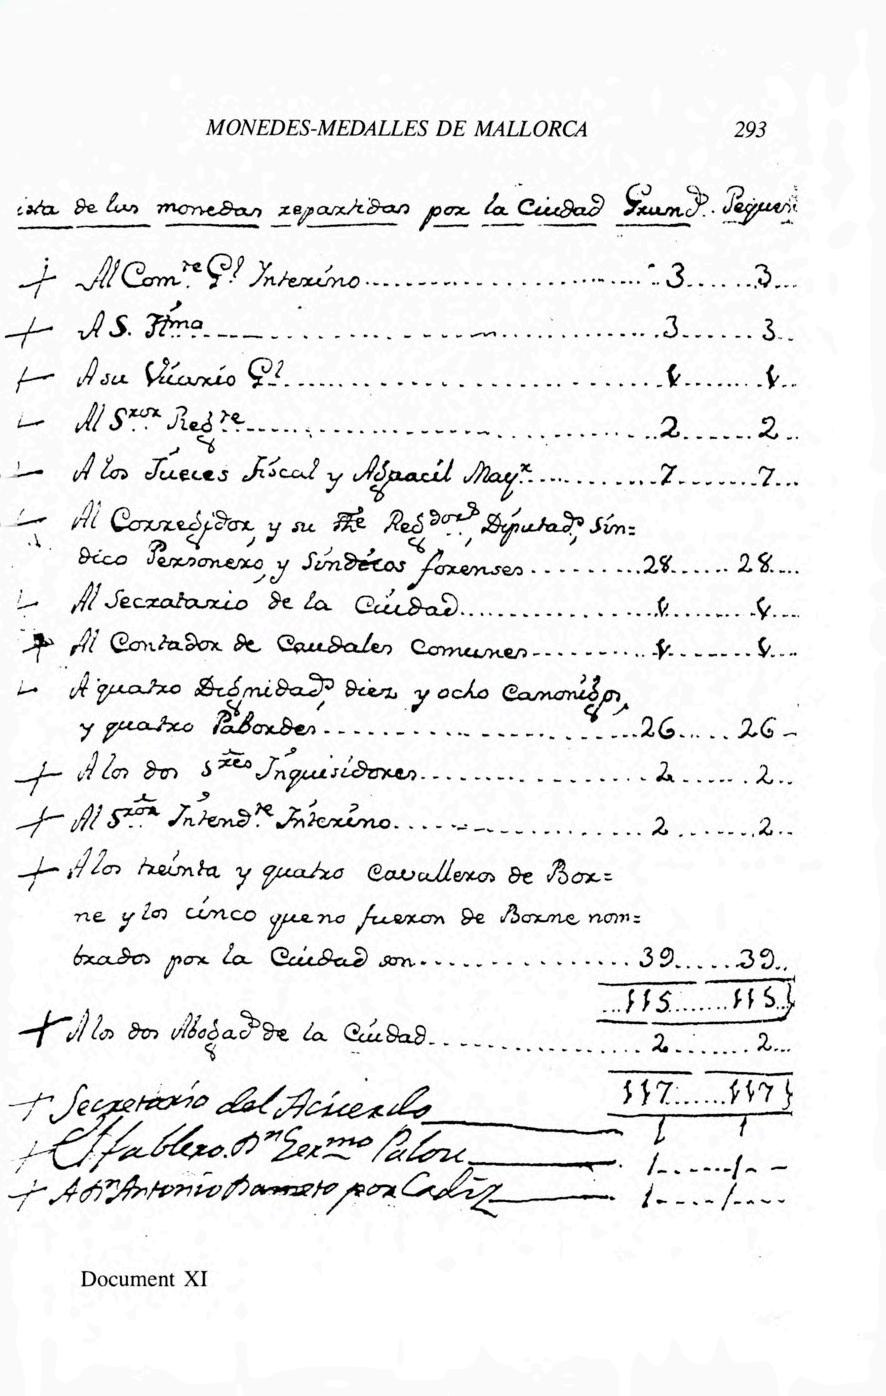 MONEDES-MEDALLES DE MALLORCA 293
ista de las monedas repartidas por la Ciudad Grand.s Pequeñ
+ Al Com.re G.l Interino 3 3
+ A S. Ittma 3 3
+ A su Vicario G.l 1 1
Al S.ror Reg.re 2 2
A los Jueces Fiscal y Alguacil May.r 7 7
Al Corregidor, y su Reg.dores, Diputad.s, Sin=
dico Personero, y Sindicos forenses 28 28
Al Secratario de la Ciudad 1 1
+ Al Contador de Caudales Comunes 1 1
A quatro Dignidad.s, diez y ocho Canonigos,
y quatro Pabordes 26 26
+ A los dos S.res Inquisidores 2 2
+ Al S.ror Intend.te Interino 2 2
+ A los treinta y quatro Cavalleros de Bor=
ne y los cinco que no fueron de Borne nom=
brados por la Ciudad son 39 39
115 115
+ A los dos Abogad.s de la Ciudad 2 2
117 117
+ Secretario del Acuerdo 1 1
+ D.n Ger.mo Palou 1 1
+ A D.n Antonio Dameto por Cadiz 1 1
Document XI